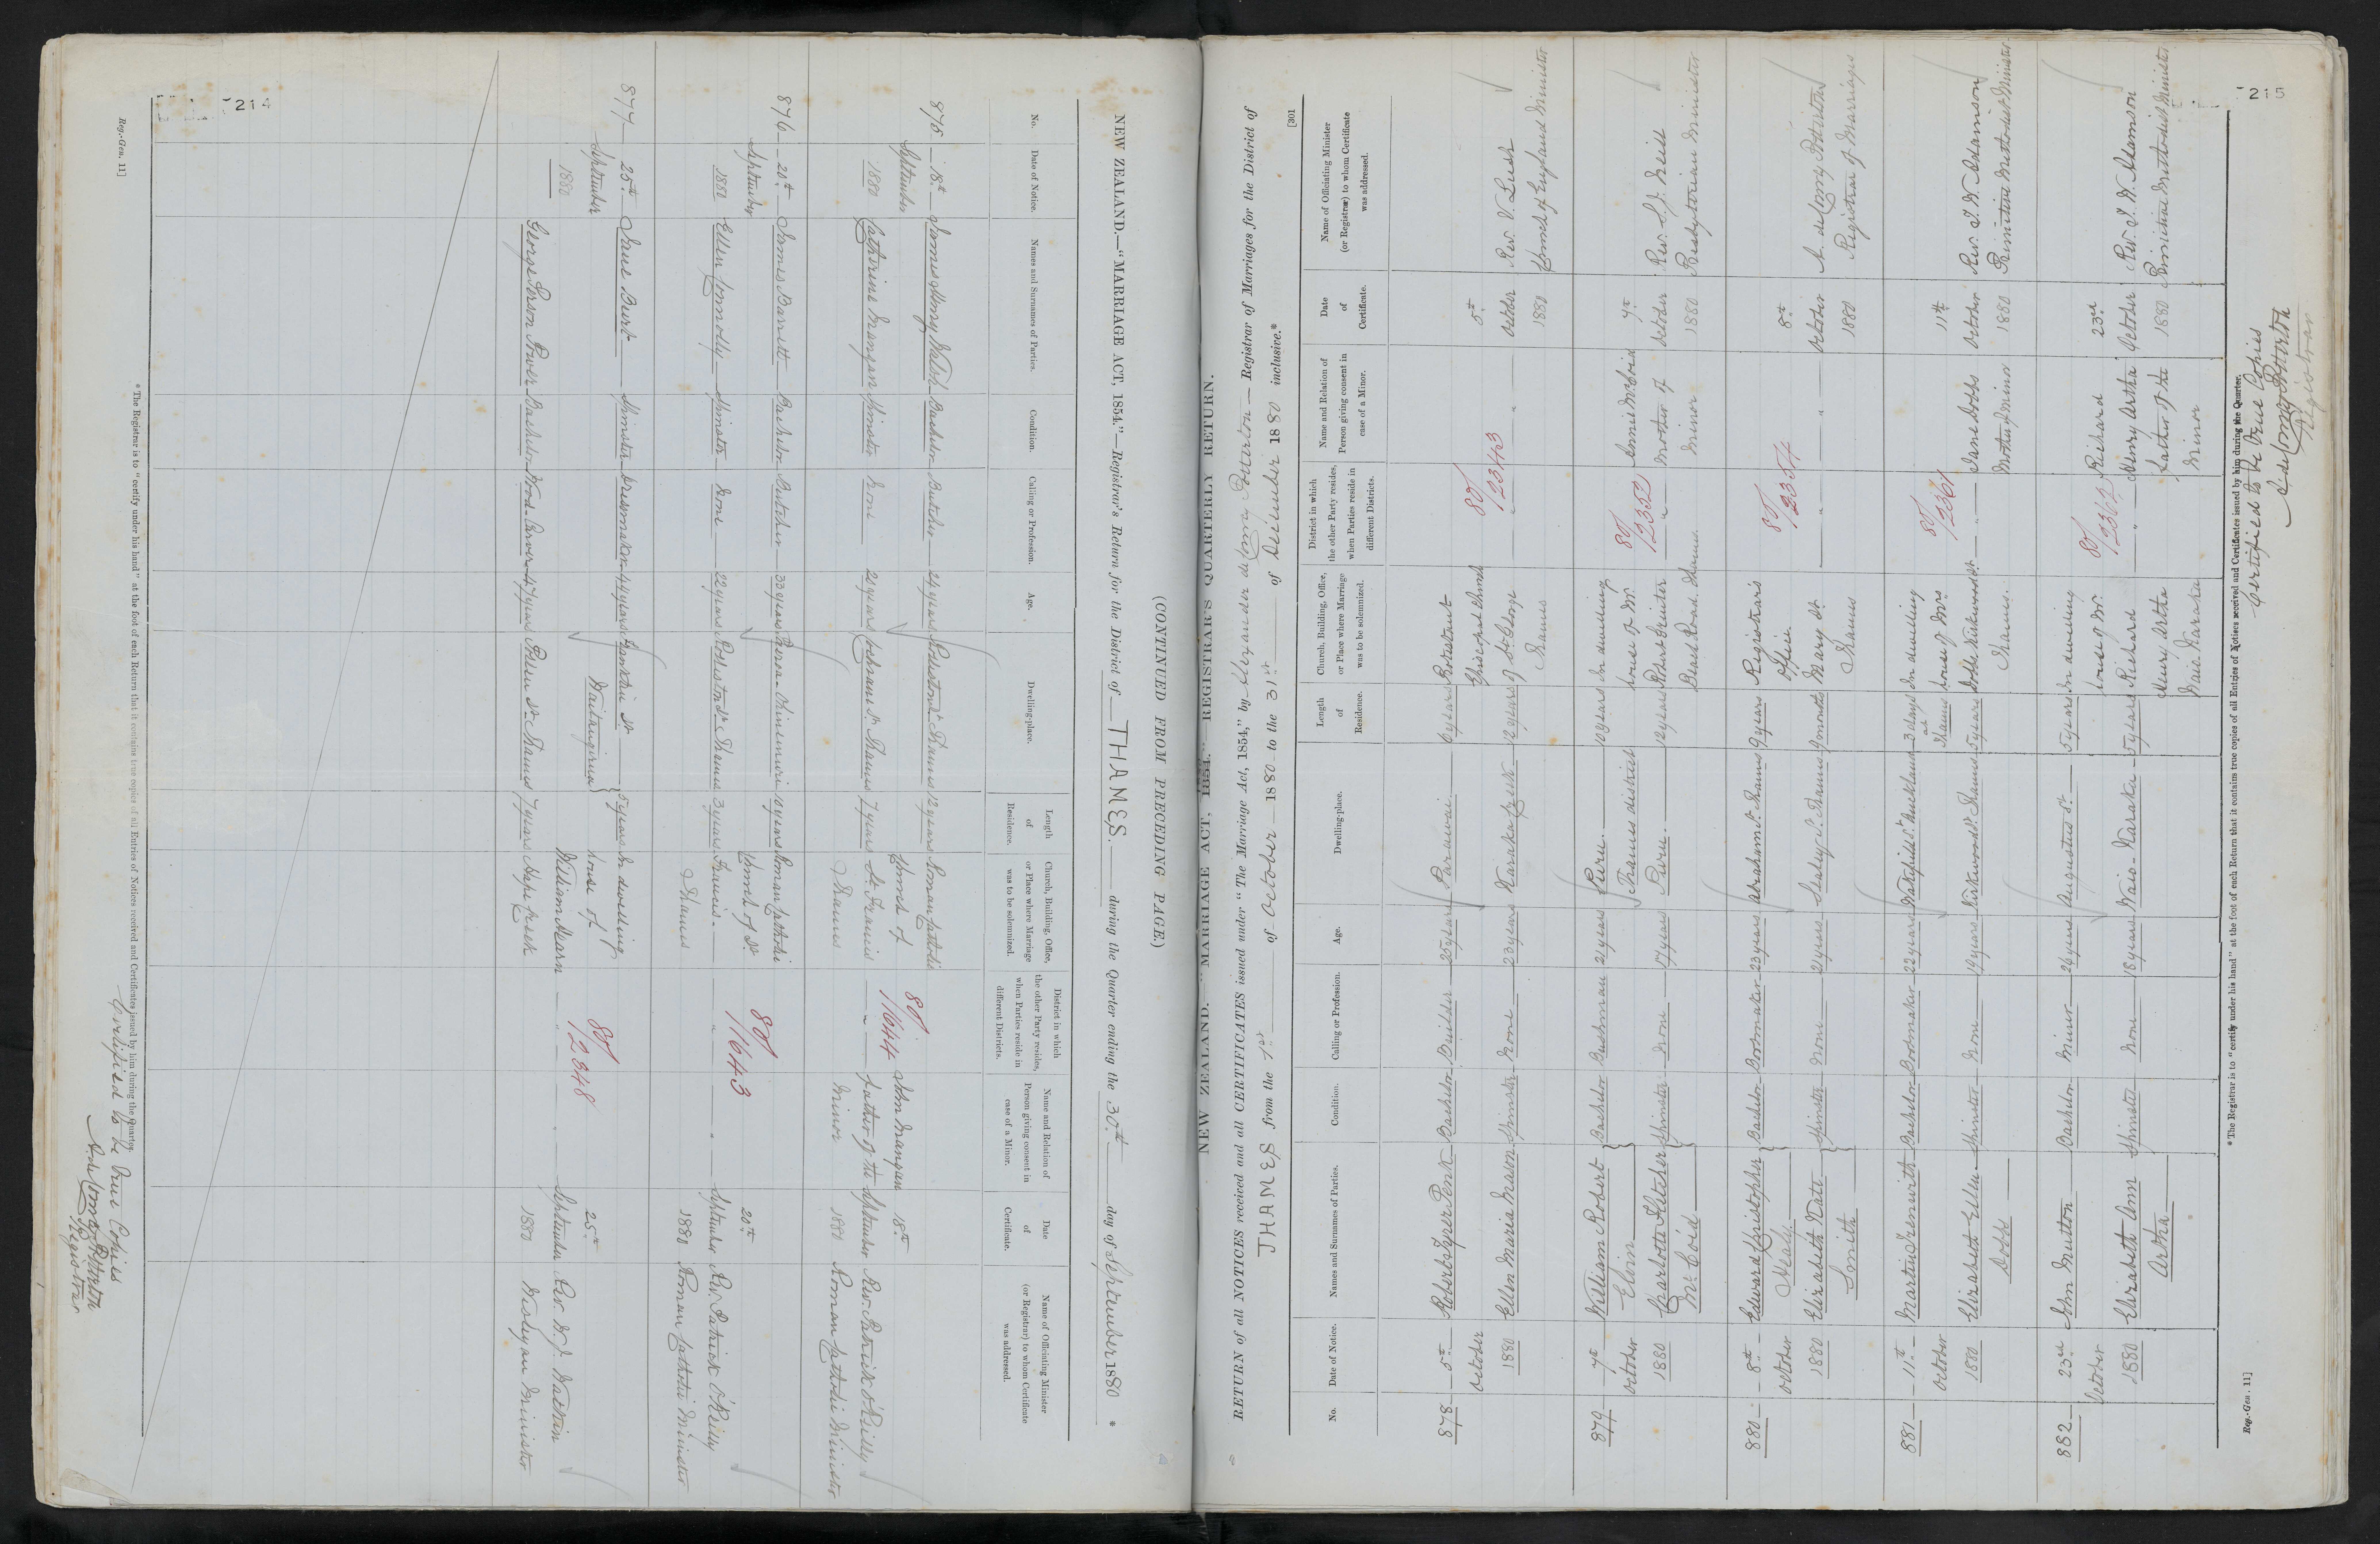 214
(CONTINUED FROM PRECEDING PAGE.)
NEW ZEALAND.—"MARRIAGE ACT, 1854."—Registrar's Return for the District of THAMES. during the Quarter ending the 30th day of September 1880 *
No.
Date of Notice.
Names and Surnames of Parties.
Condition.
Calling or Profession.
Age.
Dwelling-place.
Length of Residence.
Church, Building, Office, or Place where Marriage was to be solemnized.
District in which the other Party resides, when Parties reside in different Districts.
Name and Relation of Person giving consent in case of a Minor.
Date of Certificate.
Name of Officiating Minister (or Registrar) to whom Certificate was addressed.
875 18th September 1880
James Walsh Bachelor Butcher 24 years Rolleston St Thames 12 years
Catherine Mangan Spinster None 20 years Cochrane St. Thames 7 years
Roman Catholic Church of St Francis Thames
80/1644
John Mangan Father of the Minor
18th September 1880
Rev. Patrick O'Reilly Roman Catholic Minister
876 20th September 1880
James Barrett Bachelor Butcher 33 years Paeroa-Ohinemuri 10 years
Ellen Connolly Spinster None 22 years Rolleston St Thames 3 years
Roman Catholic Church of St Francis. Thames
80/1643
20th September 1880
Rev. Patrick O'Reilly Roman Catholic Minister
877 25th September 1880
Jane Burt Spinster Dressmaker 44 years Franklin St 5 years
George Power Bachelor Wood-Carver 47 years Pollen St. Thames 7 years
In dwelling house of William Hearn Hape Creek
80/2348
25th September 1880
Rev. W. J. Watkin Wesleyan Minister
* The Registrar is to "certify under his hand" at the foot of each Return that it contains true copies of all Entries of Notices received and Certificates issued by him during the Quarter.
Certified to be True Copies
Registrar
Reg.-Gen. 11]
215
[301
NEW ZEALAND.—"MARRIAGE ACT, 1854."—REGISTRAR'S QUARTERLY RETURN.
RETURN of all NOTICES received and all CERTIFICATES issued under "The Marriage Act, 1854," by Alexander de Comey Potterton Registrar of Marriages for the District of
THAMES from the 1st of October 1880 to the 31st of December 1880 inclusive.*
No.
Date of Notice.
Names and Surnames of Parties.
Condition.
Calling or Profession.
Age.
Dwelling-place.
Length of Residence.
Church, Building, Office, or Place where Marriage was to be solemnized.
District in which the other Party resides, when Parties reside in different Districts.
Name and Relation of Person giving consent in case of a Minor.
Date of Certificate.
Name of Officiating Minister (or Registrar) to whom Certificate was addressed.
878 5th October 1880
Robert Penk Bachelor Builder 25 years Parawai 6 years
Ellen Maria Mason Spinster None 23 years Karaka Creek 12 years
Protestant Episcopal Church of St George Thames
80/2343
5th October 1880
Rev. V. Lush Church of England Minister
879 7th October 1880
William Robert Elvin Bachelor Bushman 21 years Puru. Thames district 10 years
Charlotte Fletcher McCoid Spinster None 17 years Puru. 10 years
In dwelling house of Mr. Robert Beach Road. Thames.
80/2352
Mother of Minor
7th October 1880
Rev. S. J. Neill Presbyterian Minister
880 8th October 1880
Edward Christopher Healy Bachelor Bootmaker 23 years Abraham St. Thames 9 years
Elizabeth Kate Smith Spinster None 21 years Sealey St. Thames 9 months
Registrar's Office. Mary St. Thames
80/2354
8th October 1880
A. de Comey Potterton Registrar of Marriages
881 11th October 1880
Martin Trenwith Bachelor Bootmaker 22 years Wakefield St. Auckland 3 days at Thames
Elizabeth Ellen Dodd Spinster None 19 years Kirkwood St. Thames 5 years
In dwelling house of Mrs Dodd Kirkwood St. Thames.
80/2361
Jane Dodds Mother of Minor
11th October 1880
Rev. J. W. Adamson Primitive Methodist Minister
882 23rd October 1880
John Mutton Bachelor Miner 26 years Augustus St. 5 years
Elizabeth Ann Artha Spinster None 18 years Waio-Karaka 5 years
In dwelling house of Mr. Richard Henry Artha Waio Karaka
80/2362
Richard Henry Artha Father of the Minor
23rd October 1880
Rev. J. W. Adamson Primitive Methodist Minister
* The Registrar is to "certify under his hand" at the foot of each Return that it contains true copies of all Entries of Notices received and Certificates issued by him during the Quarter.
Certified to be True Copies
Registrar
Reg.-Gen. 11]